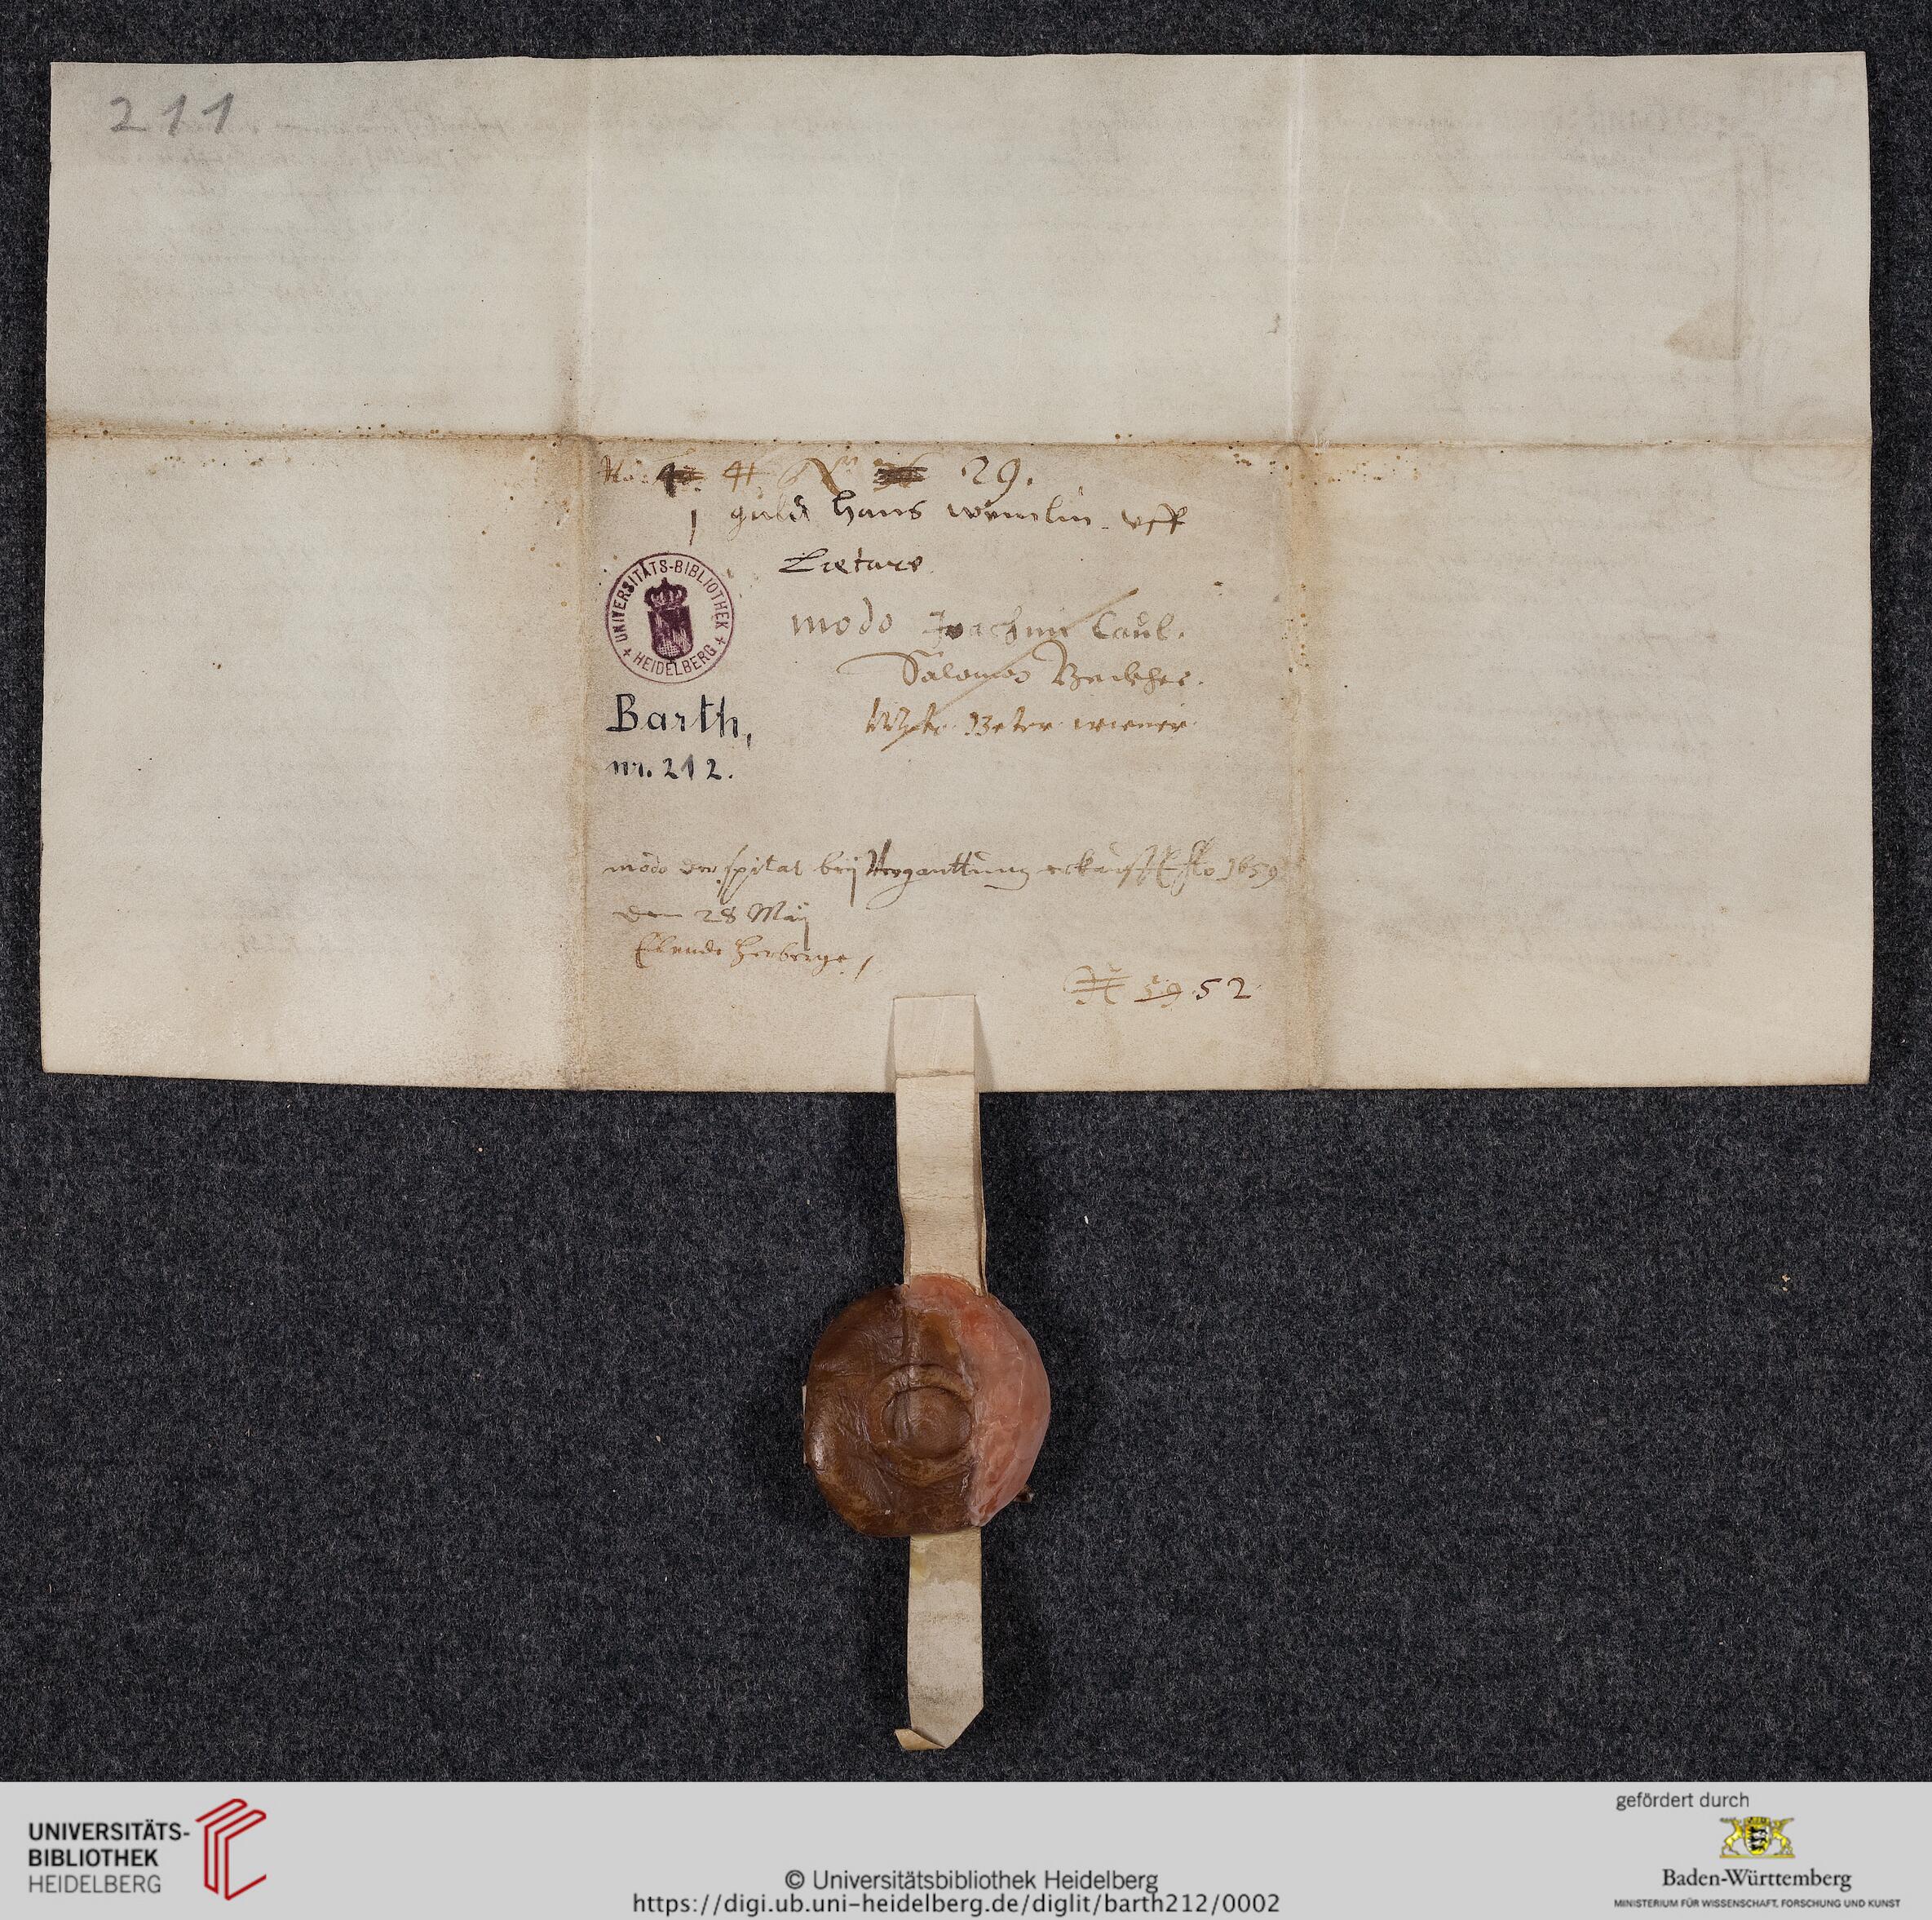 211
No: 41 No 29.
1 guld hans wemlin uff
Letare
modo Joachim Caul.
Salomon Beckher.
Peter wiener
UNIVERSITÄTS-BIBLIOTHEK
HEIDELBERG
Barth,
nr. 212.
modo der spital beÿ Verganttung erkaufft 1659
den 28 Maÿ
Ellende Herberge
N 59. 52
UNIVERSITÄTS-
BIBLIOTHEK
HEIDELBERG
© Universitätsbibliothek Heidelberg
https://digi.ub.uni-heidelberg.de/diglit/barth212/0002
gefördert durch
Baden-Württemberg
MINISTERIUM FÜR WISSENSCHAFT, FORSCHUNG UND KUNST